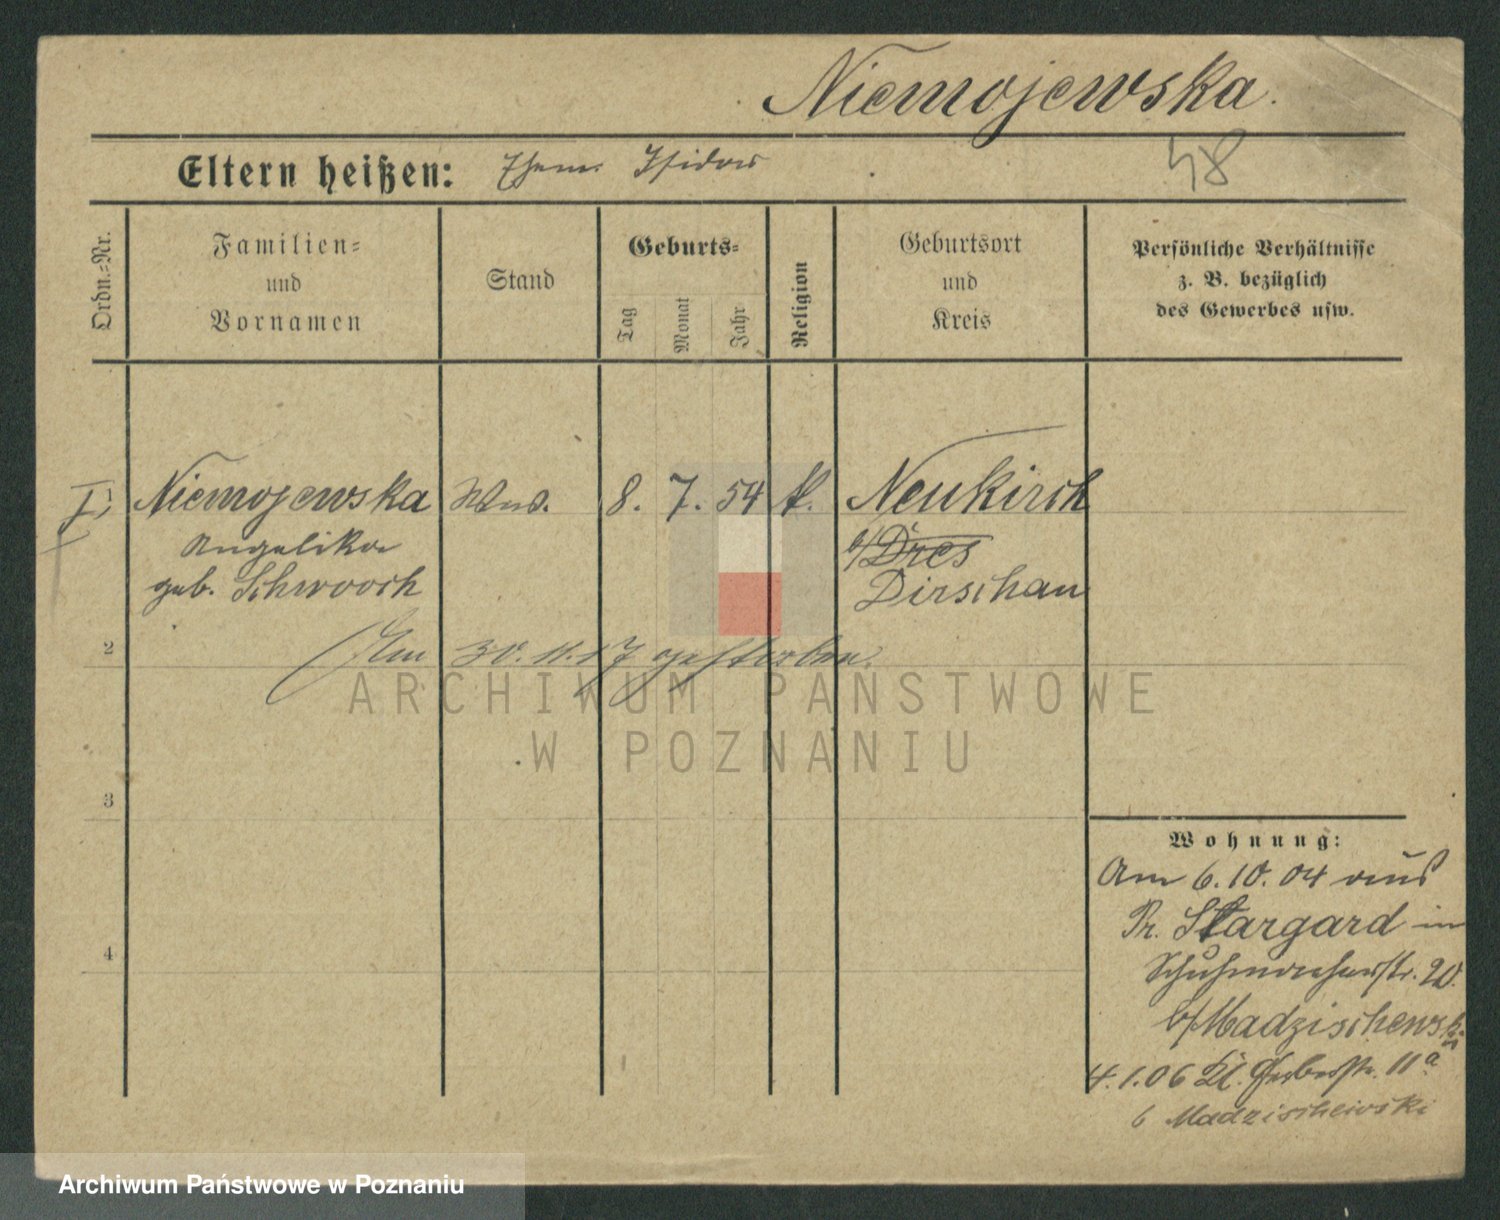 Niemojewska.
48
Eltern heißen: Ehem. Isidor
Ordn.-Nr.
Familien-
und
Vornamen
Stand
Geburts-
Tag
Monat
Jahr
Religion
Geburtsort
und
Kreis
Persönliche Verhältnisse
z. B. bezüglich
des Gewerbes usw.
1 Niemojewska Wwe. 8. 7. 54 k. Neukirch
Angelika b/Dres
geb. Schwooch Dirschau
2 Am 30.11.17 gestorben.
3
4
Wohnung:
Am 6.10.04 aus
Pr. Stargard in
Schuhmacherstr. 20.
b/Madzischewski
4.1.06 Kl. Gerberstr. 11a
b Madzischewski
ARCHIWUM PAŃSTWOWE
W POZNANIU
Archiwum Państwowe w Poznaniu